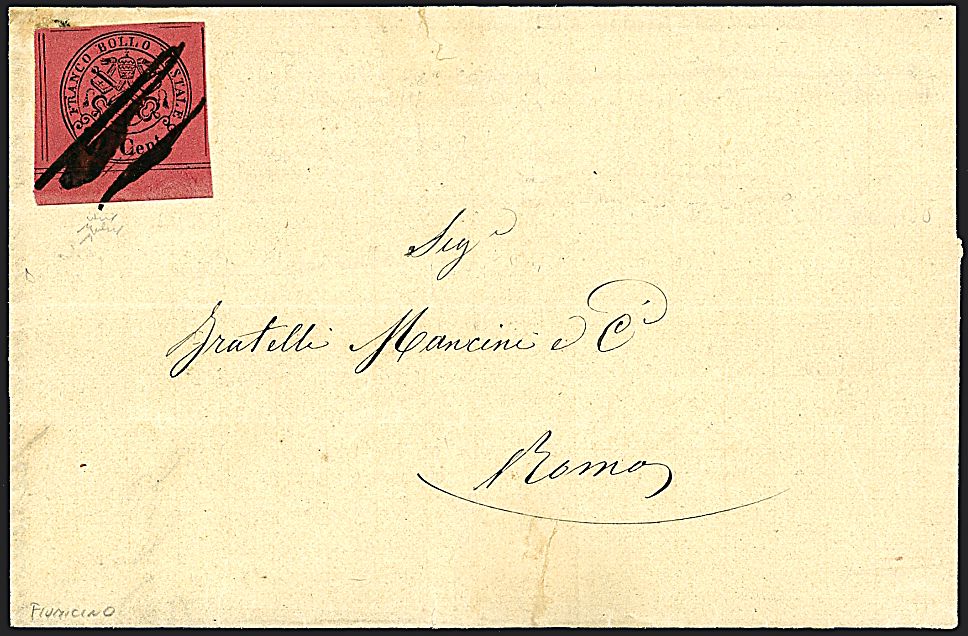 FRANCO BOLLO POSTALE
Cent
Sig.
Fratelli Mancini e C.
Roma
FIUMICINO